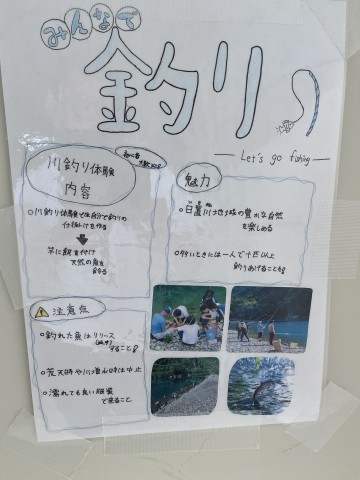 みんなで
釣り
Let's go fishing
川釣り体験
内容
初心者
大歓迎
○川釣り体験では自分で釣りの
仕掛けを作る
竿に餌を付け
天然の魚を
釣る
魅力
○日置川地域の豊かな自然
を楽しめる
○多いときには一人で十匹以上
釣りあげることも
注意点
○釣れた魚はリリース
すること
○荒天時や川増水時は中止
○濡れても良い服装
で来ること